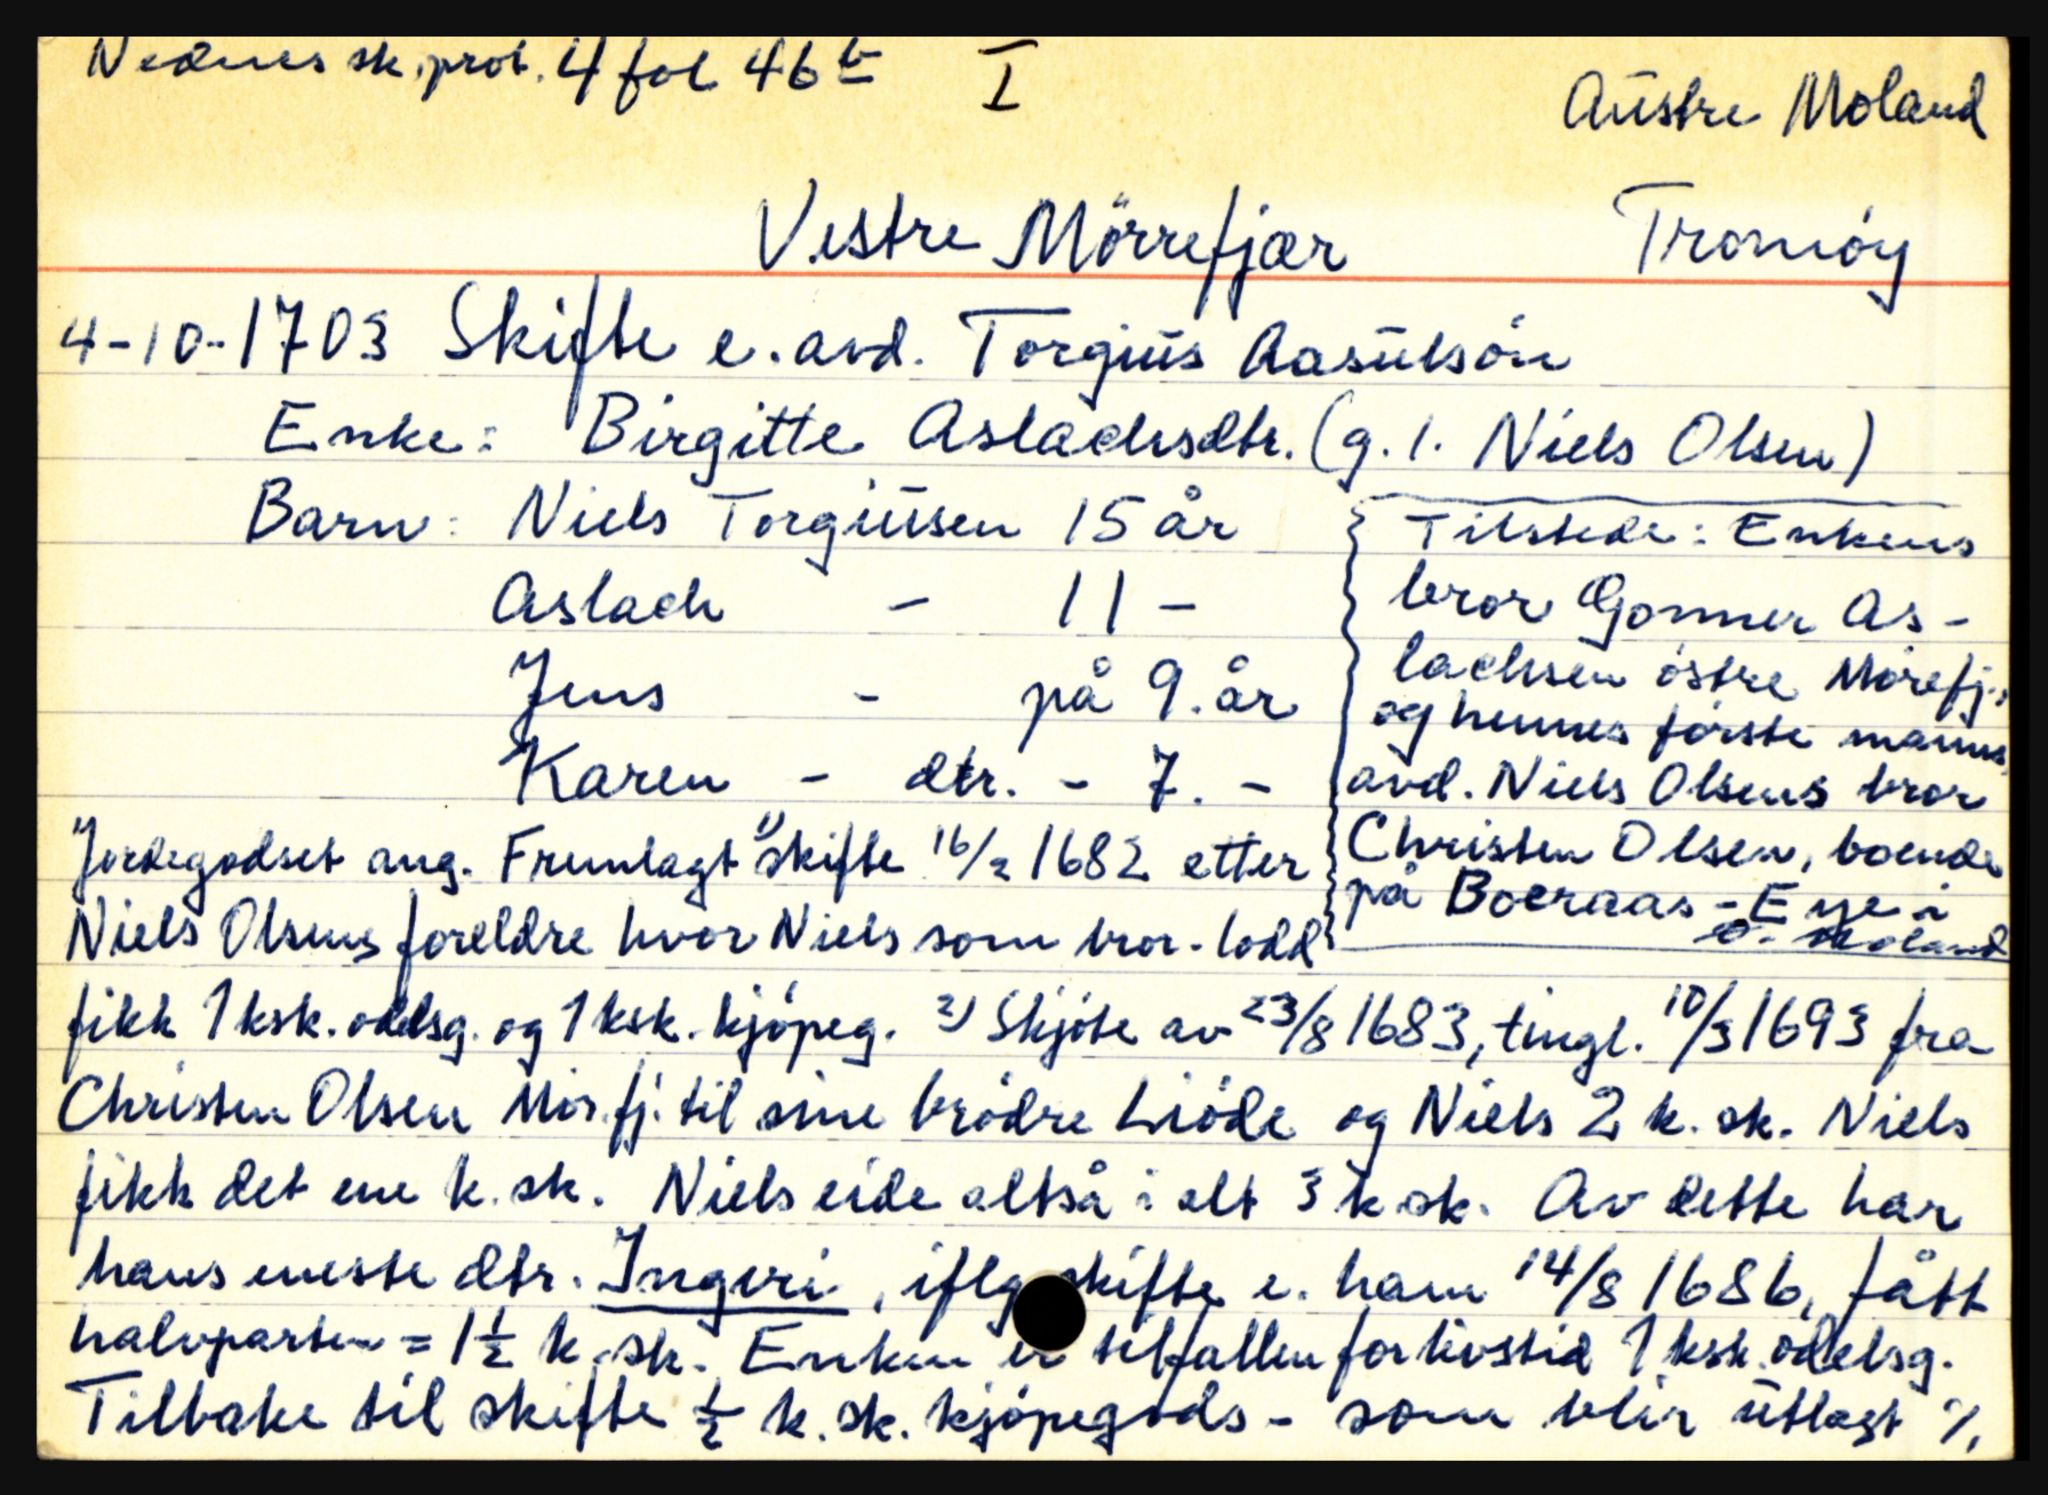 Nednes sk.prot. 4 fol 46 b I
Aüstre Moland
Vestre Mörrefjær
Tromöy
4-10-1703 Skifte e. avd. Torgiüs Aasülsön
Enke: Birgitte Aslachsdtr. (g. 1. Niels Olsen)
Barn: Niels Torgiüsen 15 år
Aslach - 11 -
Jens - på 9. år
Karen - dtr. - 7. -
Tilstede: Enkens
bror Gonner As-
lachsen östre Mörefj.,
og hennes förste manns,
avd. Niels Olsens bror
Christen Olsen, boende
på Boeraas - Eye i
Ö. Moland
Jordegodset ang. Fremlagt 1) skifte 16/2 1682 etter
Niels Olsens foreldre hvor Niels som bror-lodd
fikk 1 ksk. odelsg. og 1 ksk. kjöpeg. 2) Skjöte av 23/8 1683, tingl. 10/3 1693 fra
Christen Olsen Mör.fj. til sine brödre Liöde og Niels 2 k. sk. Niels
fikk det ene k. sk. Niels eide altså i alt 3 k sk. Av dette har
hans eneste dtr. Ingeri, iflg skifte e. ham 14/8 1686, fått
halvparten = 1 1/2 k. sk. Enken er tilfallen for livstid 1 ksk. odelsg.
Tilbake til skifte 1/2 k. sk. kjöpegods - som blir ütlagt %.